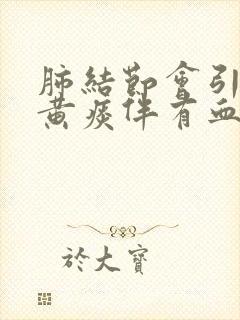 肺結節會引
黃痰伴有血
於大寶